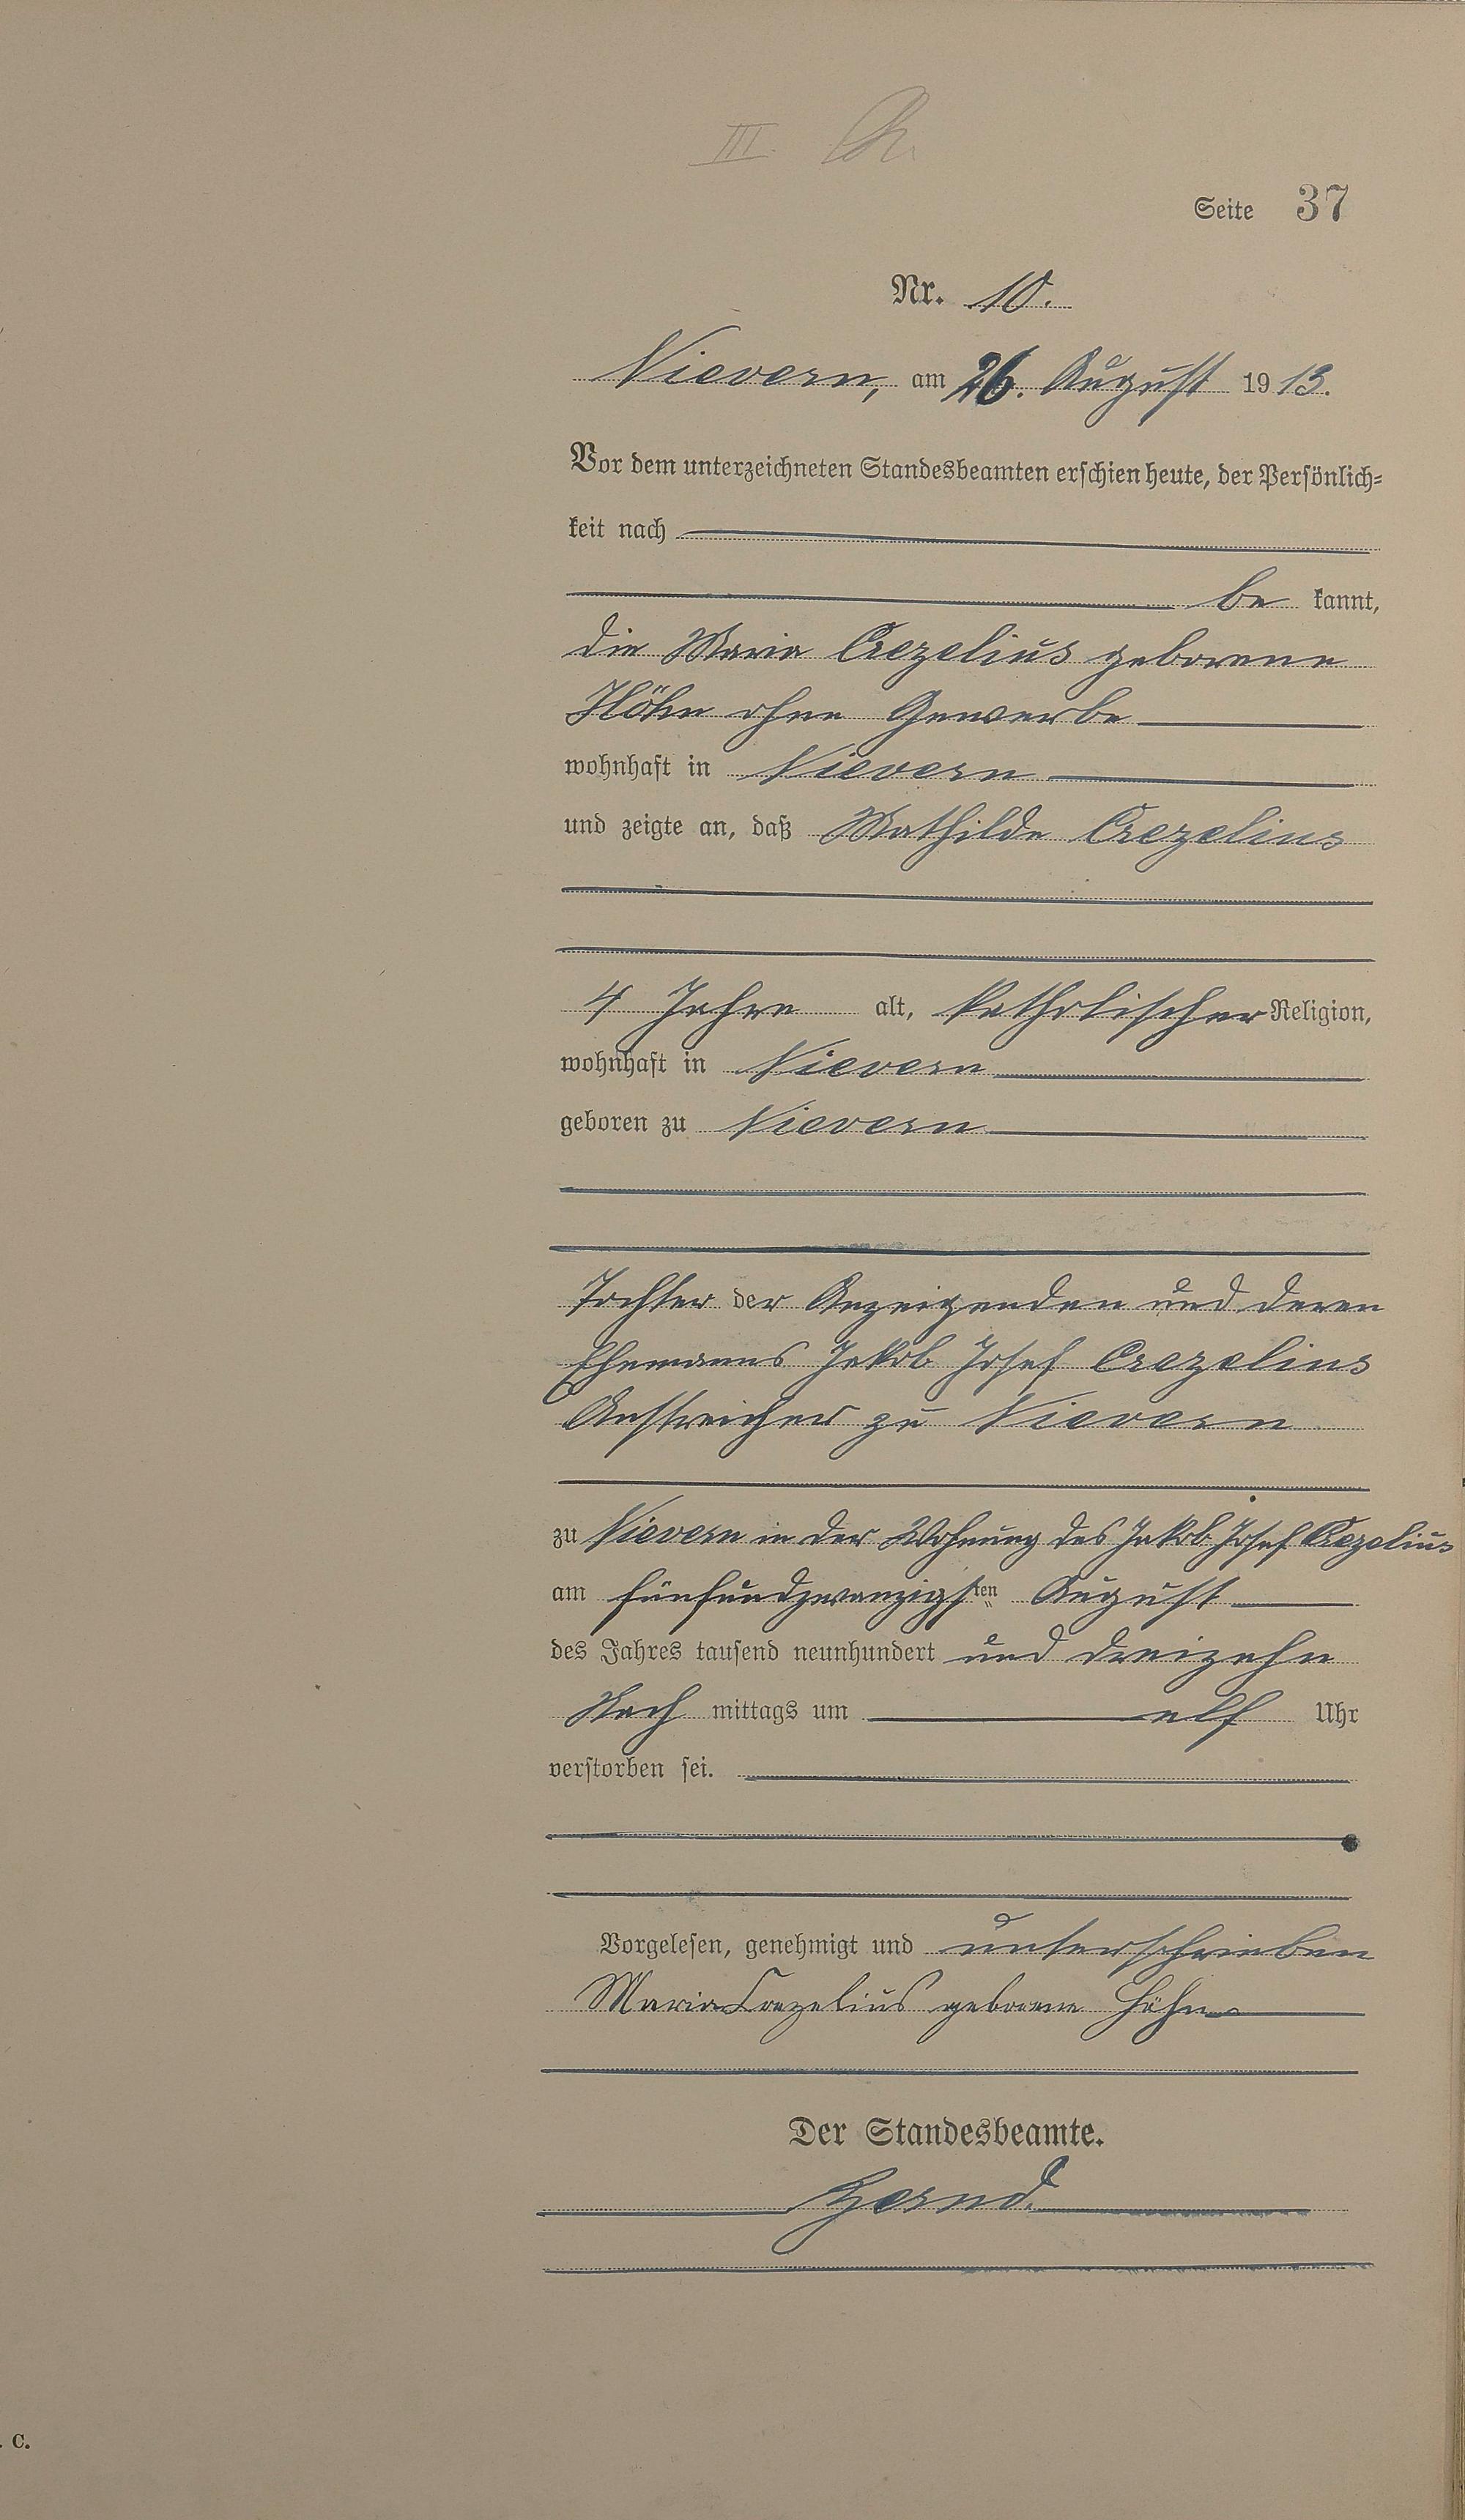 III.
Seite 37
Nr. 10.
Nievern, am 26. August 1913.
Vor dem unterzeichneten Standesbeamten erschien heute, der Persönlich-
keit nach
be kannt,
die Maria Crezelius geborene
Höhn ohne Gewerbe
wohnhaft in Nievern
und zeigte an, daß Mathilde Crezelius
4 Jahre alt, katholischer Religion,
wohnhaft in Nievern
geboren zu Nievern
Tochter der Anzeigenden und deren
Ehemanns Jakob Josef Crezelius
Anstreicher zu Nievern
zu Nievern in der Wohnung des Jakob Josef Crezelius
am fünfundzwanzigsten August
des Jahres tausend neunhundert und dreizehn
Nach mittags um elf Uhr
verstorben sei.
Vorgelesen, genehmigt und unterschrieben
Maria Crezelius geborene Höhn
Der Standesbeamte.
. C.